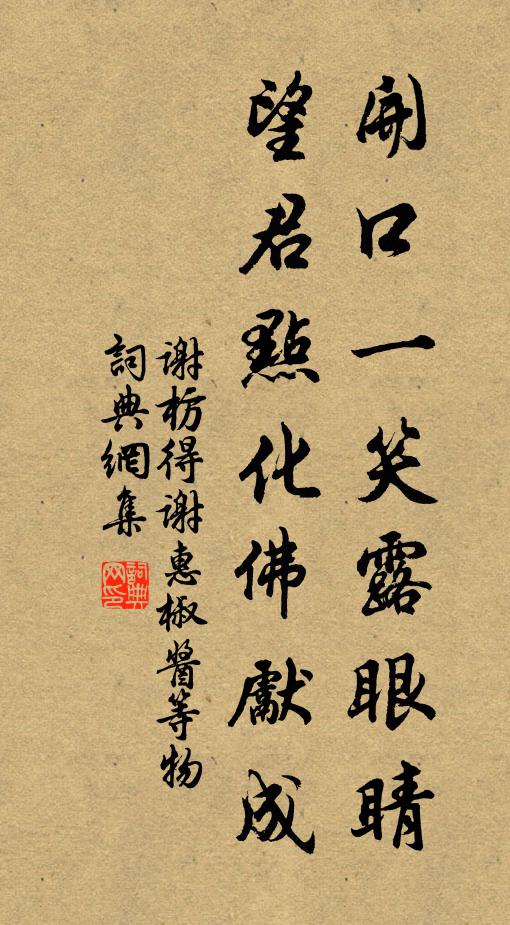 開口一笑露眼睛
望君點化佛獻成
謝枋得謝惠椒醬等物
詞典網集
詞典網印